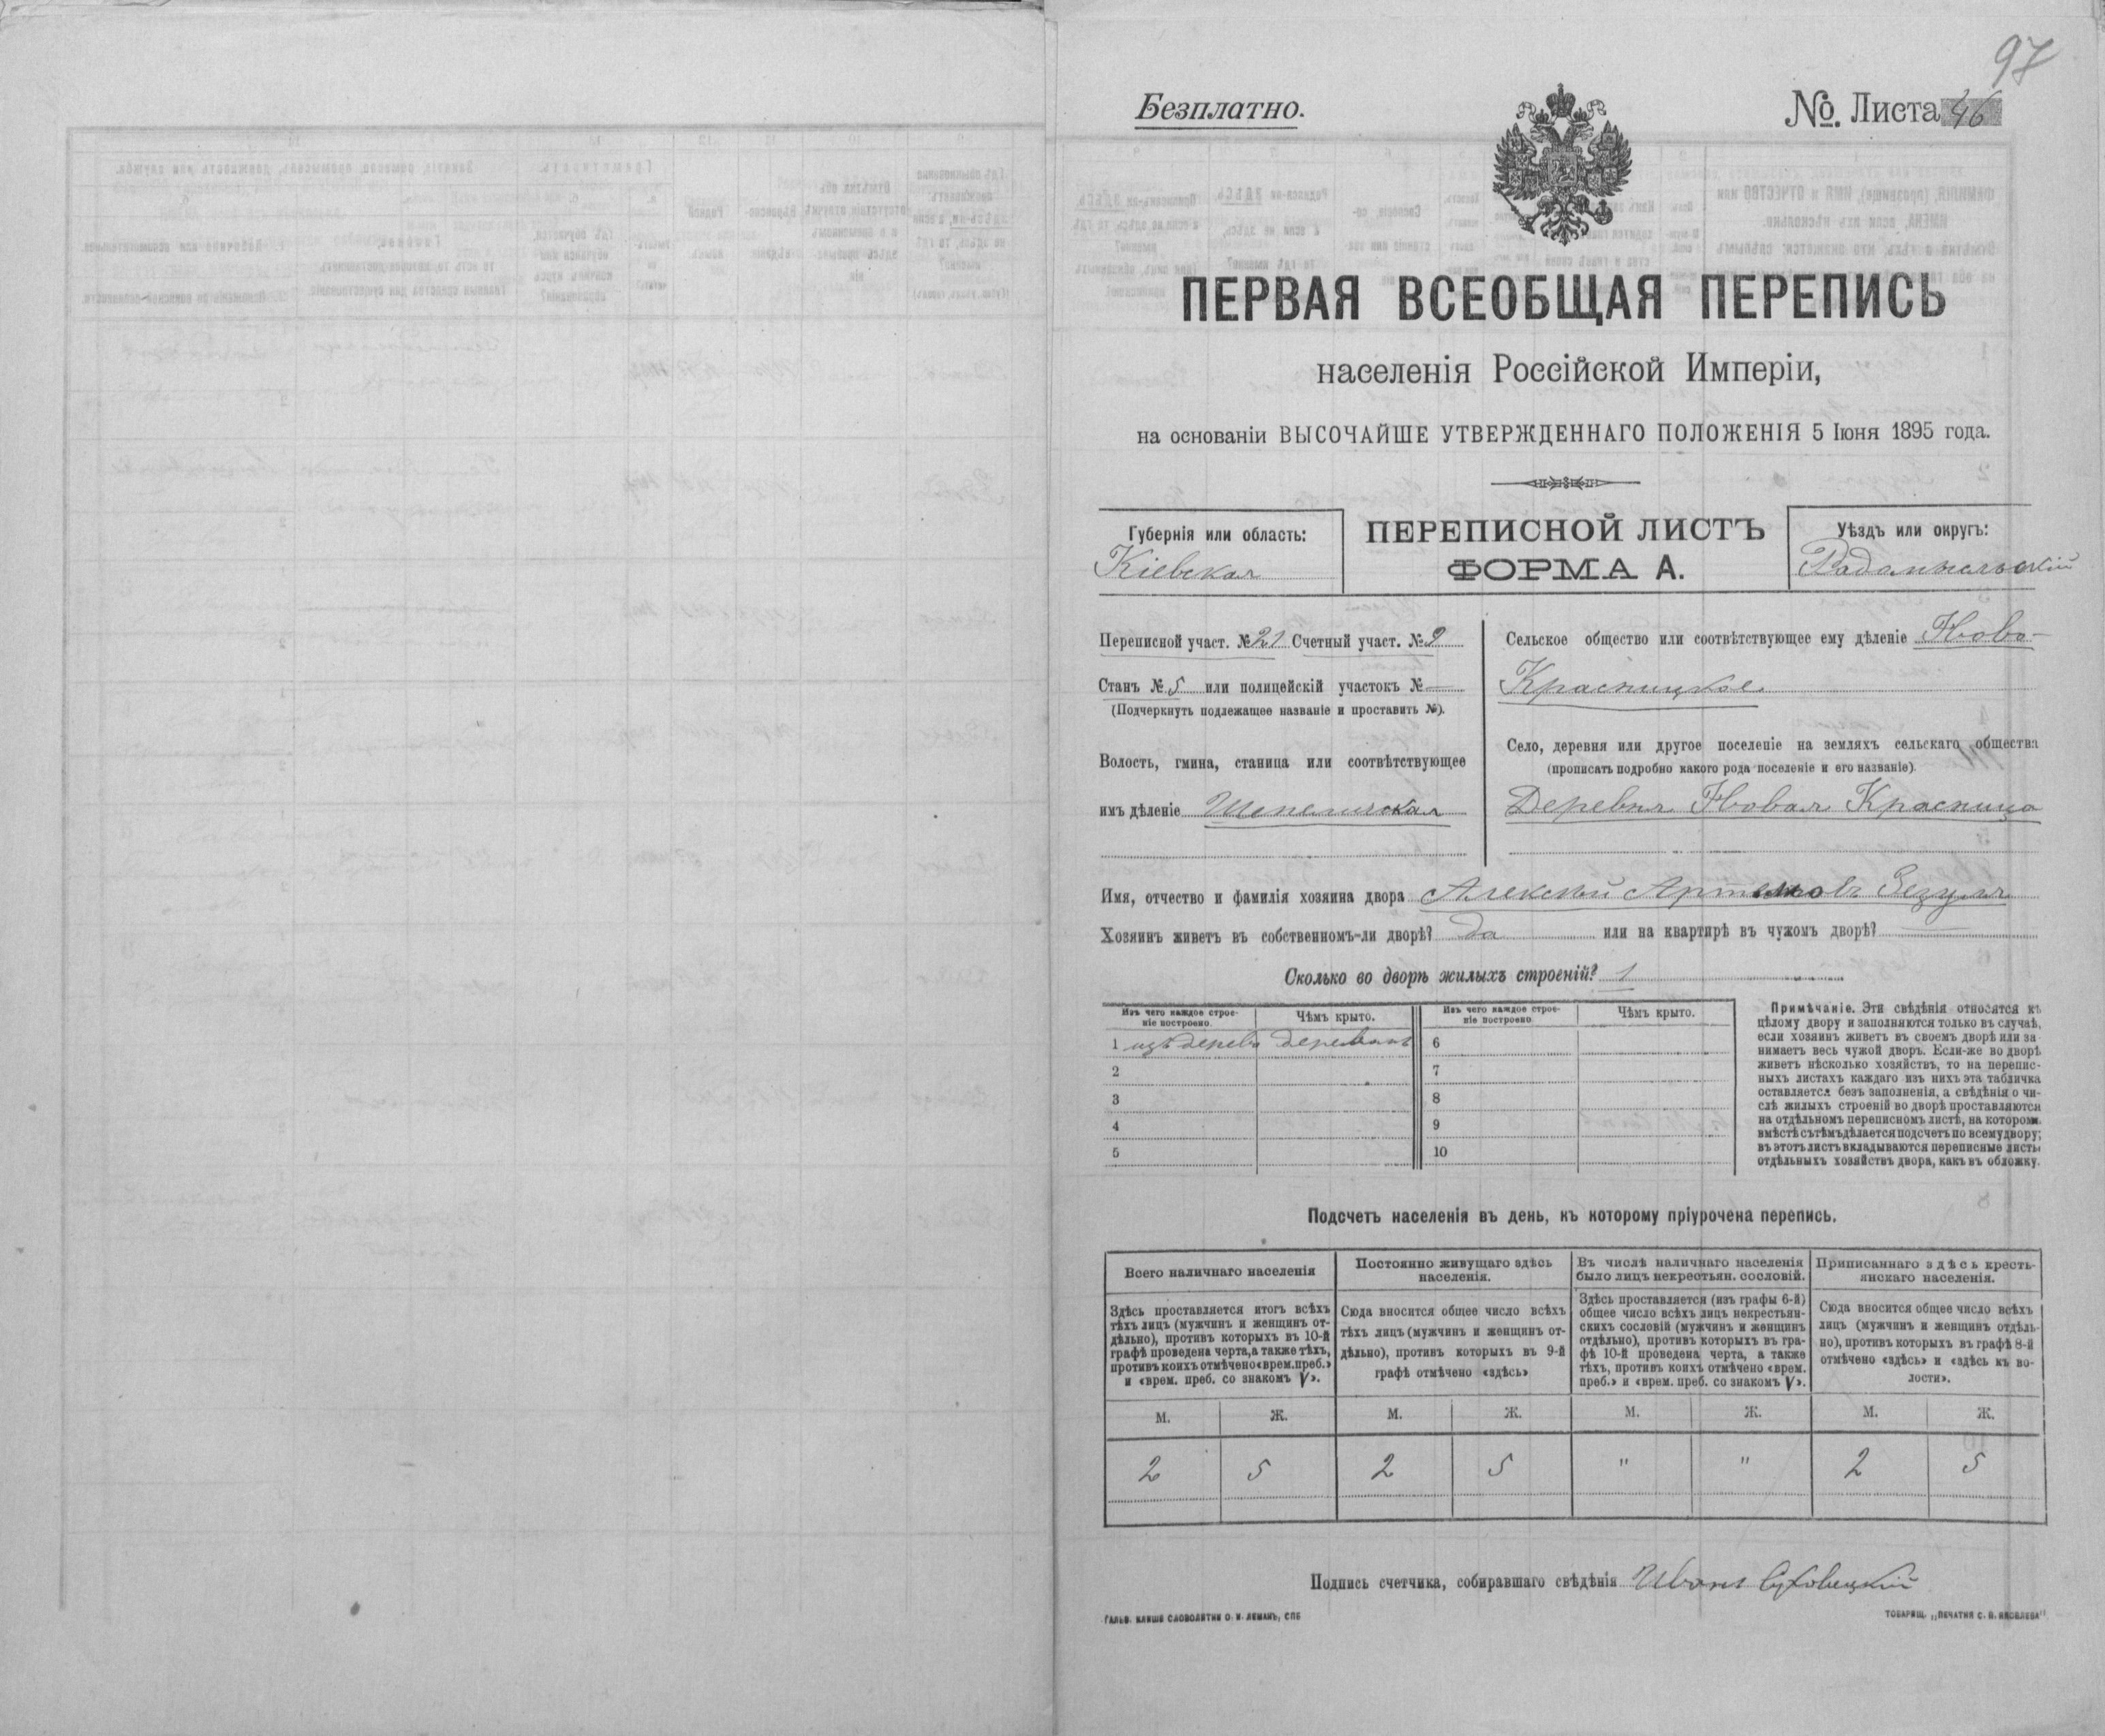 97
Безплатно.
№. Листа 46
ПЕРВАЯ ВСЕОБЩАЯ ПЕРЕПИСЬ
населенія Россійской Имперіи,
на основаніи ВЫСОЧАЙШЕ УТВЕРЖДЕННАГО ПОЛОЖЕНІЯ 5 Іюня 1895 года.
Губернія или область:
Кіевская
ПЕРЕПИСНОЙ ЛИСТЪ
ФОРМА А.
Уѣздъ или округъ:
Радомысльскій
Переписной участ. № 21 Счетный участ. № 9
Станъ № 5 или полицейскій участокъ № —
(Подчеркнуть подлежащее названіе и проставить №).
Волость, гмина, станица или соотвѣтствующее
имъ дѣленіе Шепеличская
Сельское общество или соотвѣтствующее ему дѣленіе Ново-
Красницкое
Село, деревня или другое поселеніе на земляхъ сельскаго общества
(прописать подробно какого рода поселеніе и его названіе).
Деревня Новая Красница
Имя, отчество и фамилія хозяина двора Алексѣй Артемовъ Зезуля
Хозяинъ живетъ въ собственномъ-ли дворѣ? да или на квартирѣ въ чужомъ дворѣ? —
Сколько во дворѣ жилыхъ строеній? 1
Изъ чего каждое строе-
ніе построено.
Чѣмъ крыто.
Изъ чего каждое строе-
ніе построено.
Чѣмъ крыто.
1 изъ дерева деревомъ 6
2 7
3 8
4 9
5 10
Примѣчаніе. Эти свѣдѣнія относятся къ
цѣлому двору и заполняются только въ случаѣ,
если хозяинъ живетъ въ своемъ дворѣ или за-
нимаетъ весь чужой дворъ. Если-же во дворѣ
живетъ нѣсколько хозяйствъ, то на перепис-
ныхъ листахъ каждаго изъ нихъ эта табличка
оставляется безъ заполненія, а свѣдѣнія о чи-
слѣ жилыхъ строеній во дворѣ проставляются
на отдѣльномъ переписномъ листѣ, на которомъ
вмѣстѣ съ тѣмъ дѣлается подсчетъ по всему двору;
въ этотъ листъ вкладываются переписные листы
отдѣльныхъ хозяйствъ двора, какъ въ обложку.
Подсчетъ населенія въ день, къ которому пріурочена перепись.
Всего наличнаго населенія
Здѣсь проставляется итогъ всѣхъ
тѣхъ лицъ (мужчинъ и женщинъ от-
дѣльно), противъ которыхъ въ 10-й
графѣ проведена черта, а также тѣхъ,
противъ коихъ отмѣчено «врем. преб.»
и «врем. преб. со знакомъ V».
Постоянно живущаго здѣсь
населенія.
Сюда вносится общее число всѣхъ
тѣхъ лицъ (мужчинъ и женщинъ от-
дѣльно), противъ которыхъ въ 9-й
графѣ отмѣчено «здѣсь»
Въ числѣ наличнаго населенія
было лицъ некрестьян. сословій.
Здѣсь проставляется (изъ графы 6-й)
общее число всѣхъ лицъ некрестьян-
скихъ сословій (мужчинъ и женщинъ
отдѣльно), противъ которыхъ въ гра-
фѣ 10-й проведена черта, а также
тѣхъ, противъ коихъ отмѣчено «врем.
преб.» и «врем. преб. со знакомъ V».
Приписаннаго здѣсь кресть-
янскаго населенія.
Сюда вносится общее число всѣхъ
лицъ (мужчинъ и женщинъ отдѣль-
но), противъ которыхъ въ графѣ 8-й
отмѣчено «здѣсь» и «здѣсь къ во-
лости».
М. Ж. М. Ж. М. Ж. М. Ж.
2 5 2 5 " " 2 5
Подпись счетчика, собиравшаго свѣдѣнія Иванъ Суховецкій
ГАЛЬВ. КЛИШЕ СЛОВОЛИТНИ О. И. ЛЕМАНЪ, СПБ
ТОВАРИЩ. „ПЕЧАТНЯ С. П. ЯКОВЛЕВА"